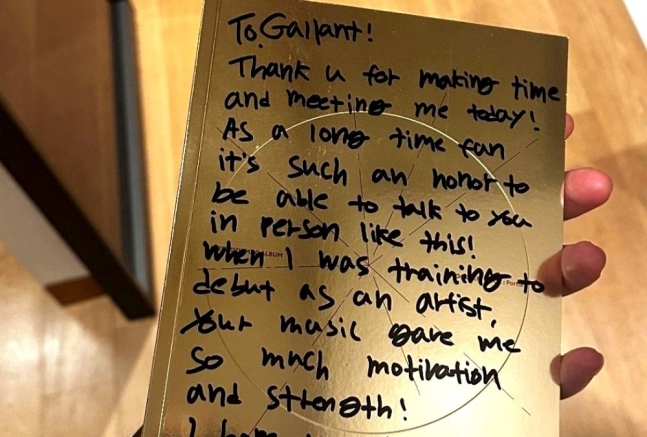 To. Gallant!
Thank u for making time
and meeting me today!
As a long time fan
it's such an honor to
be able to talk to you
in person like this!
when I was training to
debut as an artist,
your music gave me
so much motivation
and strength!
ALBUM